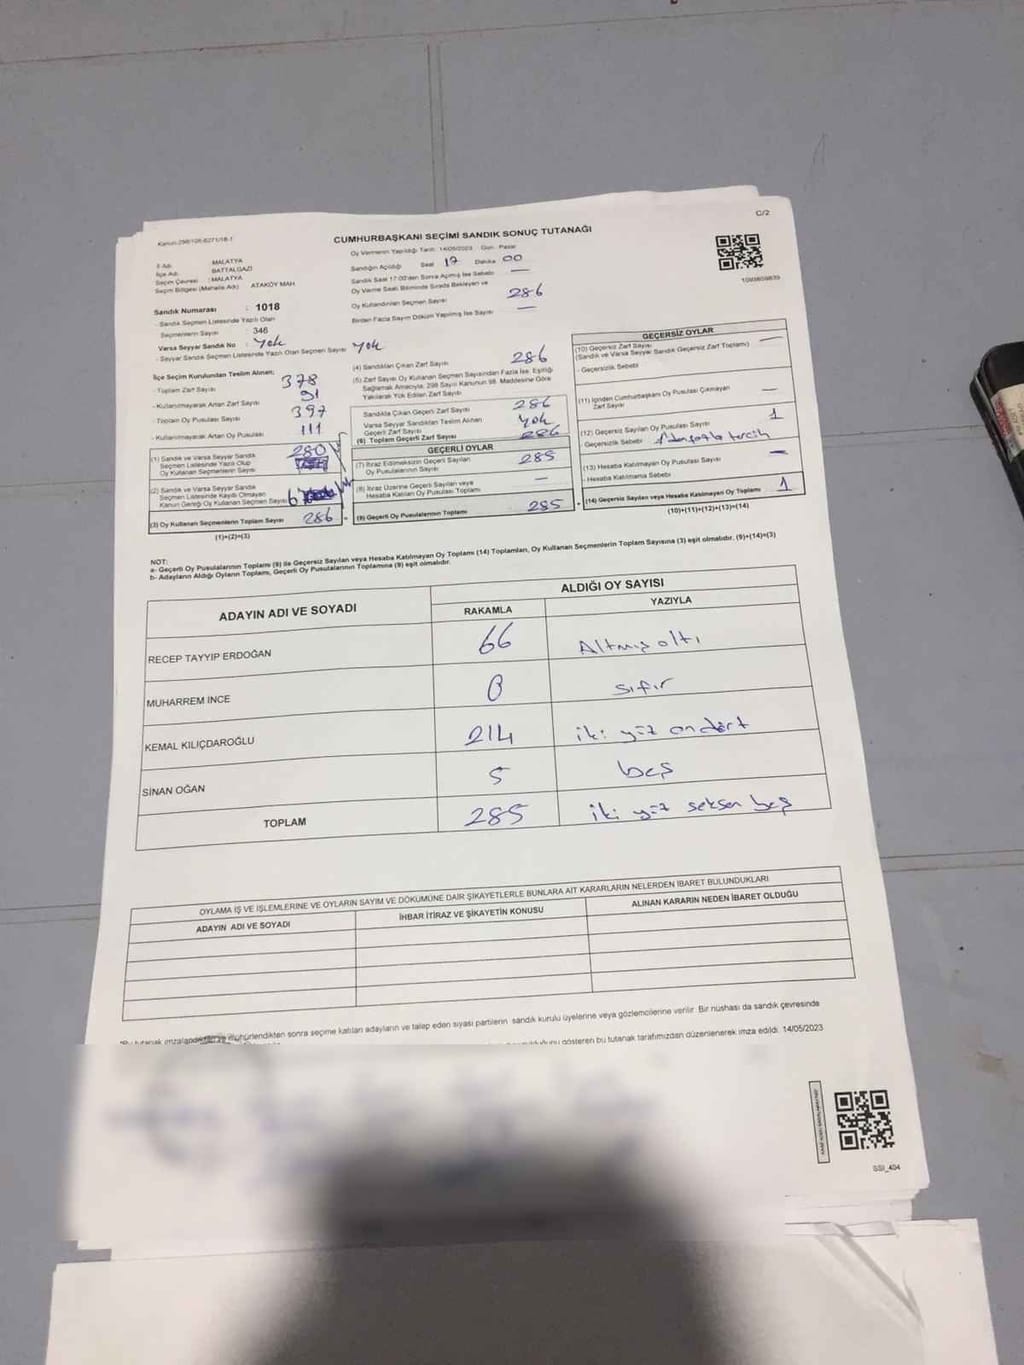 C/2
Kanun:298/105-6271/18-1
CUMHURBAŞKANI SEÇİMİ SANDIK SONUÇ TUTANAĞI
İl Adı MALATYA
İlçe Adı BATTALGAZİ
Seçim Çevresi : MALATYA
Seçim Bölgesi (Mahalle Adı) ATAKÖY MAH
Sandık Numarası : 1018
- Sandık Seçmen Listesinde Yazılı Olan
Seçmenlerin Sayısı : 346
Varsa Seyyar Sandık No : Yok
- Seyyar Sandık Seçmen Listesinde Yazılı Olan Seçmen Sayısı Yok
Oy Vermenin Yapıldığı Tarih: 14/05/2023 Gün: Pazar
Sandığın Açıldığı Saat 17 Dakika 00
Sandık Saat 17:00'den Sonra Açılmış İse Sebebi —
Oy Verme Saati Bitiminde Sırada Bekleyen ve
Oy Kullandırılan Seçmen Sayısı 286
Birden Fazla Sayım Döküm Yapılmış İse Sayısı —
1093859839
İlçe Seçim Kurulundan Teslim Alınan;
- Toplam Zarf Sayısı 378
- Kullanılmayarak Artan Zarf Sayısı 91
- Toplam Oy Pusulası Sayısı 397
- Kullanılmayarak Artan Oy Pusulası 111
(1) Sandık ve Varsa Seyyar Sandık
Seçmen Listesinde Yazılı Olup
Oy Kullanan Seçmenlerin Sayısı 280
(2) Sandık ve Varsa Seyyar Sandık
Seçmen Listesinde Kayıtlı Olmayan
Kanun Gereği Oy Kullanan Seçmen Sayısı 6
(3) Oy Kullanan Seçmenlerin Toplam Sayısı 286
(1)+(2)=(3)
(4) Sandıktan Çıkan Zarf Sayısı 286
(5) Zarf Sayısı Oy Kullanan Seçmen Sayısından Fazla İse, Eşitliği
Sağlamak Amacıyla, 298 Sayılı Kanunun 98. Maddesine Göre
Yakılarak Yok Edilen Zarf Sayısı
Sandıkta Çıkan Geçerli Zarf Sayısı 286
Varsa Seyyar Sandıktan Teslim Alınan
Geçerli Zarf Sayısı Yok
(6) Toplam Geçerli Zarf Sayısı 286
GEÇERLİ OYLAR
(7) İtiraz Edilmeksizin Geçerli Sayılan
Oy Pusulalarının Sayısı 285
(8) İtiraz Üzerine Geçerli Sayılan veya
Hesaba Katılan Oy Pusulası Toplamı —
(9) Geçerli Oy Pusulalarının Toplamı 285
GEÇERSİZ OYLAR
(10) Geçersiz Zarf Sayısı
(Sandık ve Varsa Seyyar Sandık Geçersiz Zarf Toplamı) —
- Geçersizlik Sebebi
(11) İçinden Cumhurbaşkanı Oy Pusulası Çıkmayan
Zarf Sayısı —
(12) Geçersiz Sayılan Oy Pusulası Sayısı 1
- Geçersizlik Sebebi tercih
(13) Hesaba Katılmayan Oy Pusulası Sayısı —
- Hesaba Katılmama Sebebi
(14) Geçersiz Sayılan veya Hesaba Katılmayan Oy Toplamı 1
(10)+(11)+(12)+(13)=(14)
NOT:
a- Geçerli Oy Pusulalarının Toplamı (9) ile Geçersiz Sayılan veya Hesaba Katılmayan Oy Toplamı (14) Toplamları, Oy Kullanan Seçmenlerin Toplam Sayısına (3) eşit olmalıdır. (9)+(14)=(3)
b- Adayların Aldığı Oyların Toplamı, Geçerli Oy Pusulalarının Toplamına (9) eşit olmalıdır.
ADAYIN ADI VE SOYADI ALDIĞI OY SAYISI
RAKAMLA YAZIYLA
RECEP TAYYIP ERDOĞAN 66 Altmış altı
MUHARREM İNCE 0 sıfır
KEMAL KILIÇDAROĞLU 214 iki yüz ondört
SİNAN OĞAN 5 beş
TOPLAM 285 iki yüz seksen beş
OYLAMA İŞ VE İŞLEMLERİNE VE OYLARIN SAYIM VE DÖKÜMÜNE DAİR ŞİKAYETLERLE BUNLARA AİT KARARLARIN NELERDEN İBARET BULUNDUKLARI
ADAYIN ADI VE SOYADI İHBAR İTİRAZ VE ŞİKAYETİN KONUSU ALINAN KARARIN NEDEN İBARET OLDUĞU
*Bu tutanak imzalandıktan ve mühürlendikten sonra seçime katılan adayların ve talep eden siyasi partilerin sandık kurulu üyelerine veya gözlemcilerine verilir. Bir nüshası da sandık çevresinde
gösteren bu tutanak tarafımızdan düzenlenerek imza edildi. 14/05/2023
SSİ_404